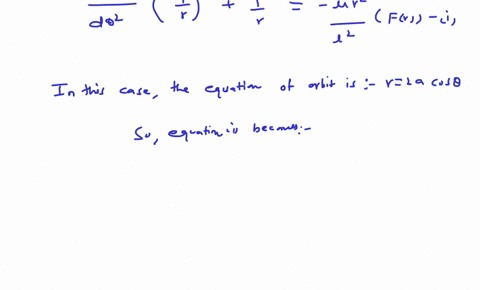 d²/dθ² (1/r) + 1/r = -μr²/l² (F(r)) - i,
In this case, the equation of orbit is :- r=2a cosθ
So, equation iv becomes:-